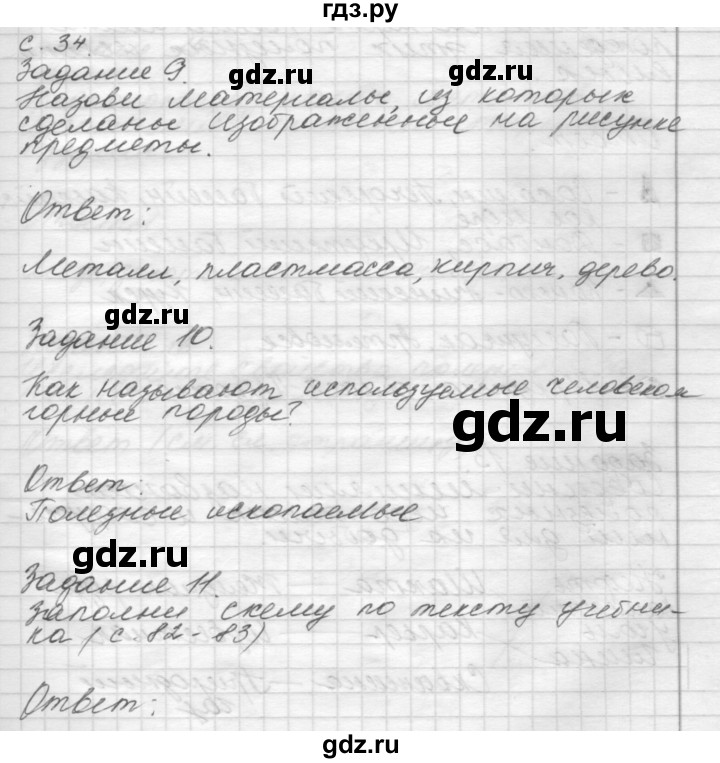 гдз.ру
с. 34.
Задание 9.
gdz.ru
gdz.ru
Назови материалы, из которых
сделаны изображённые на рисунке
предметы.
Ответ:
Металл, пластмасса, кирпич, дерево.
gdz.ru
Задание 10.
Как называют используемые человеком
горные породы?
gdz.ru
Ответ:
Полезные ископаемые
gdz.ru
Задание 11.
Заполни схему по тексту учебни-
ка (с 82-83)
Ответ:
gdz.ru